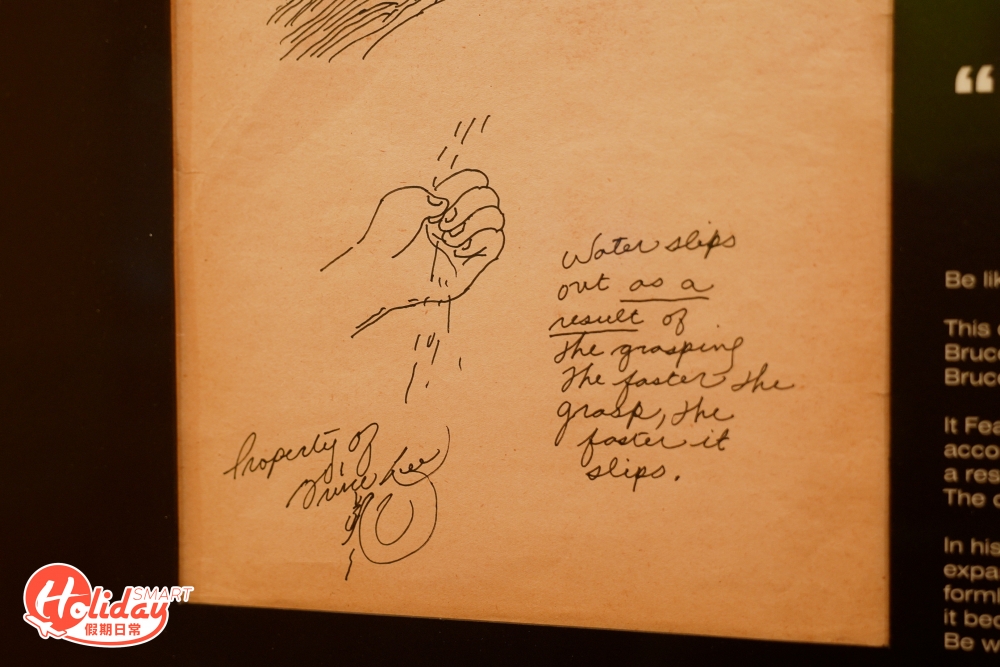 Water slips
out as a
result of
the grasping
The faster the
grasp, the
faster it
slips.
Property of
Bruce Lee
“
Be lik
This
Bruce
Bruce
It Fea
acco
a res
The
In his
expa
form
it bec
Be w
Holiday
SMART
假期日常